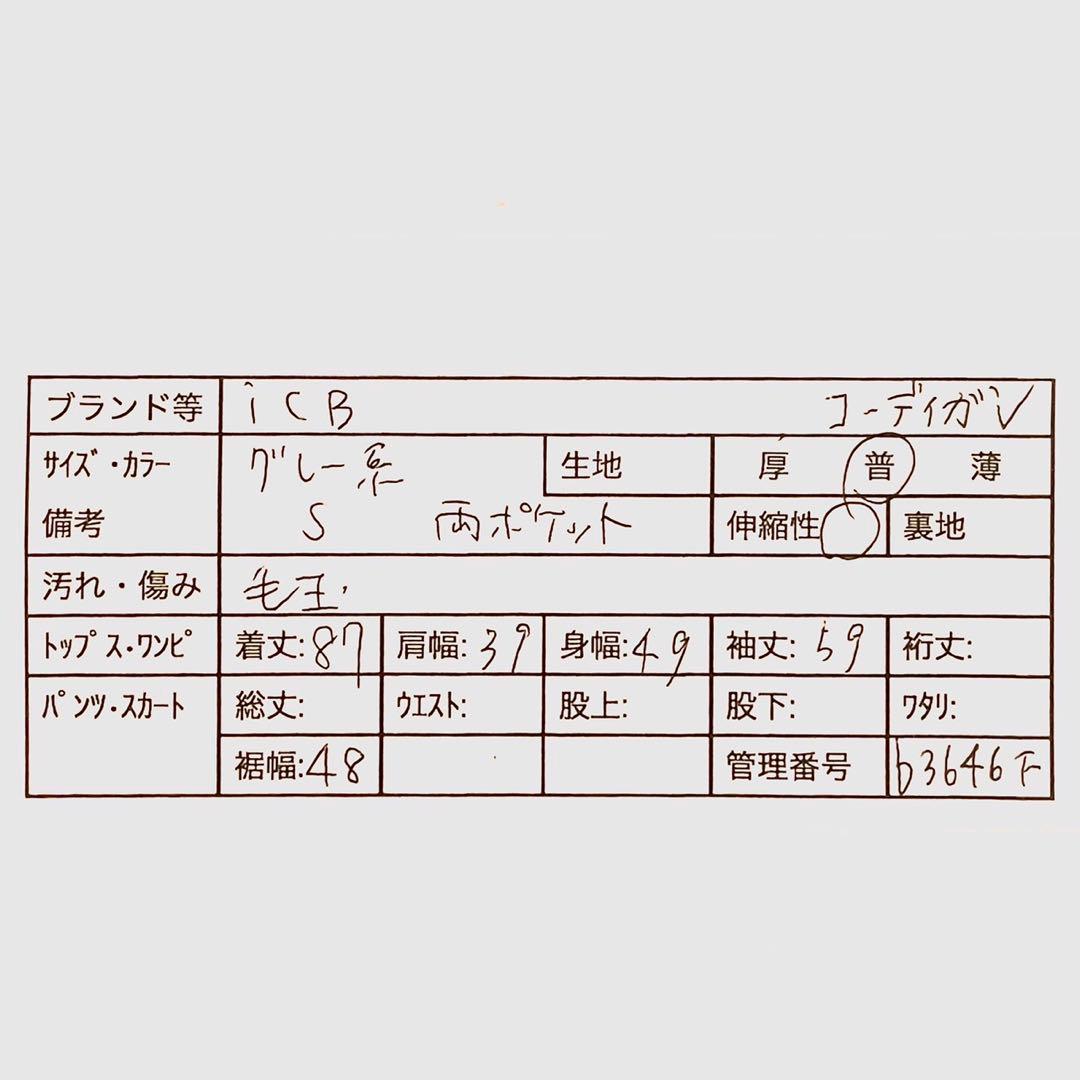 ブランド等 iCB コーディガン
サイズ・カラー グレー系 生地 厚 普 薄
備考 S 両ポケット 伸縮性 裏地
汚れ・傷み 毛玉
トップス・ワンピ 着丈:87 肩幅:39 身幅:49 袖丈:59 裄丈:
パンツ・スカート 総丈: ウエスト: 股上: 股下: ワタリ:
裾幅:48 管理番号 b3646下